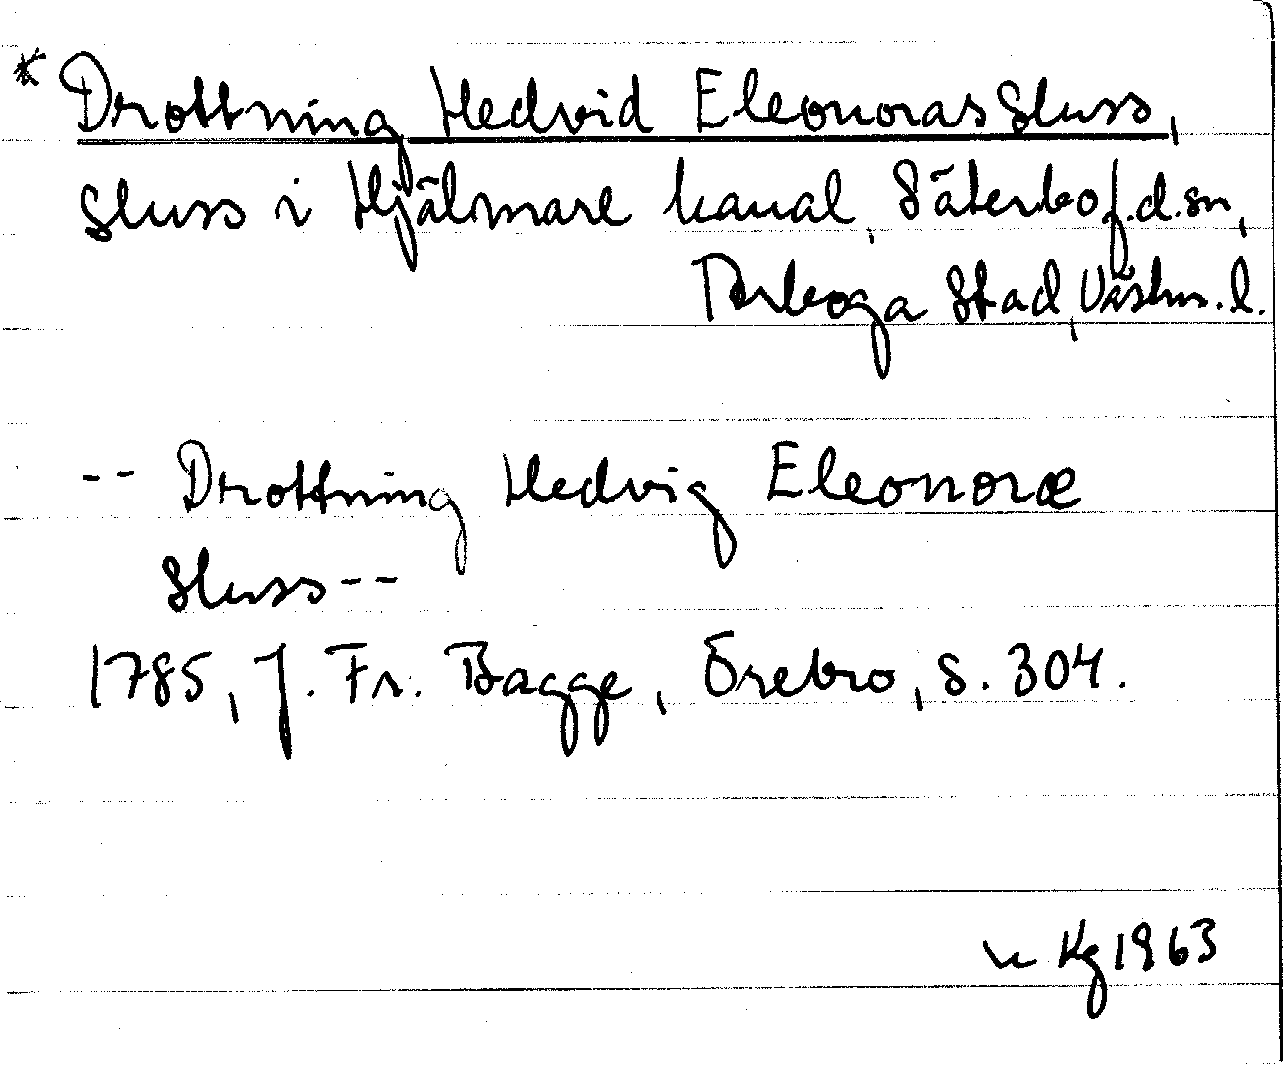 * Drottning Hedvid Eleonoras Sluss,
Sluss i Hjälmare kanal, Säterbo f.d. sn,
Arboga Stad, Västm. l.
-- Drottning Hedvig Eleonoræ
Sluss --
1785, J. Fr. Bagge, Örebro, s. 304.
Kg 1963